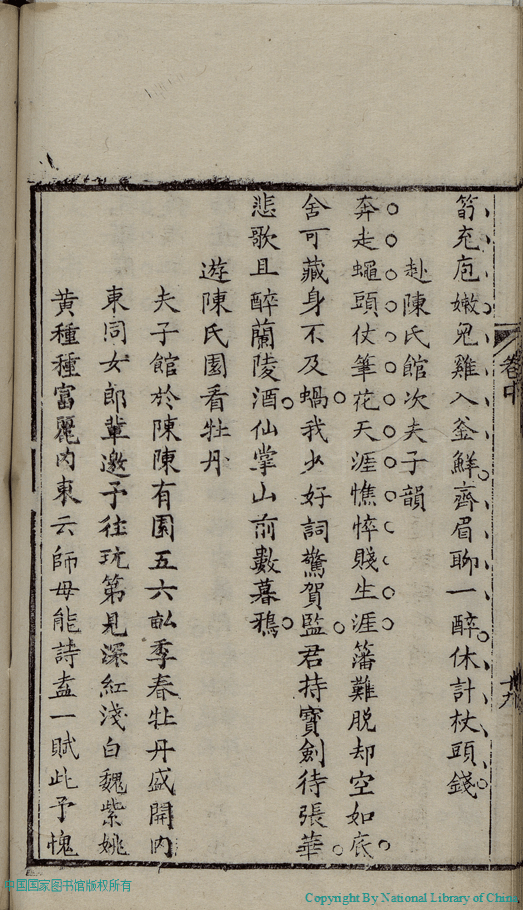 筍充庖嫩兔雞入釜鮮齊眉聊一醉休計杖頭錢
赴陳氏館次夫子韻
奔走蠅頭仗筆花天涯憔悴賤生涯籓難脱却空如底
舍可藏身不及蝸我少好詞驚賀監君持寶劍待張華
悲歌且醉蘭陵酒仙掌山前數暮鴉
遊陳氏園看牡丹
夫子館於陳陳有園五六畝季春牡丹盛開内
東同女郎輩邀予往玩第見深紅淺白魏紫姚
黄種種富麗内東云師母能詩盍一賦此予愧
卷中
十九
中国国家图书馆版权所有
Copyright By National Library of China